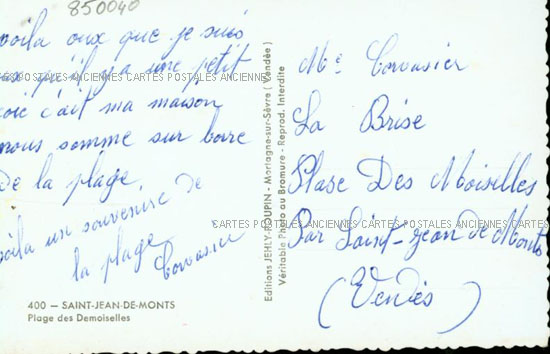 850040
voila oux que je suis
ras qu'il y a une petit
coic c'ait ma maison
nous somme sur bore
De la plage
voila un souvenire de
la plage
Corvasier
400 — SAINT-JEAN-DE-MONTS
Plage des Demoiselles
Editions JEHLY-POUPIN - Mortagne-sur-Sèvre ( Vendée )
Véritable Photo au Bromure - Reprod. Interdite
Me Corvasier
La Brise
Plase Des Moiselles
Par Saint-Jean de Monts
(Vendés)
CARTES POSTALES ANCIENNES CARTES POSTALES ANCIENNES
CARTES POSTALES ANCIENNES CARTES POSTALES ANCIENNES